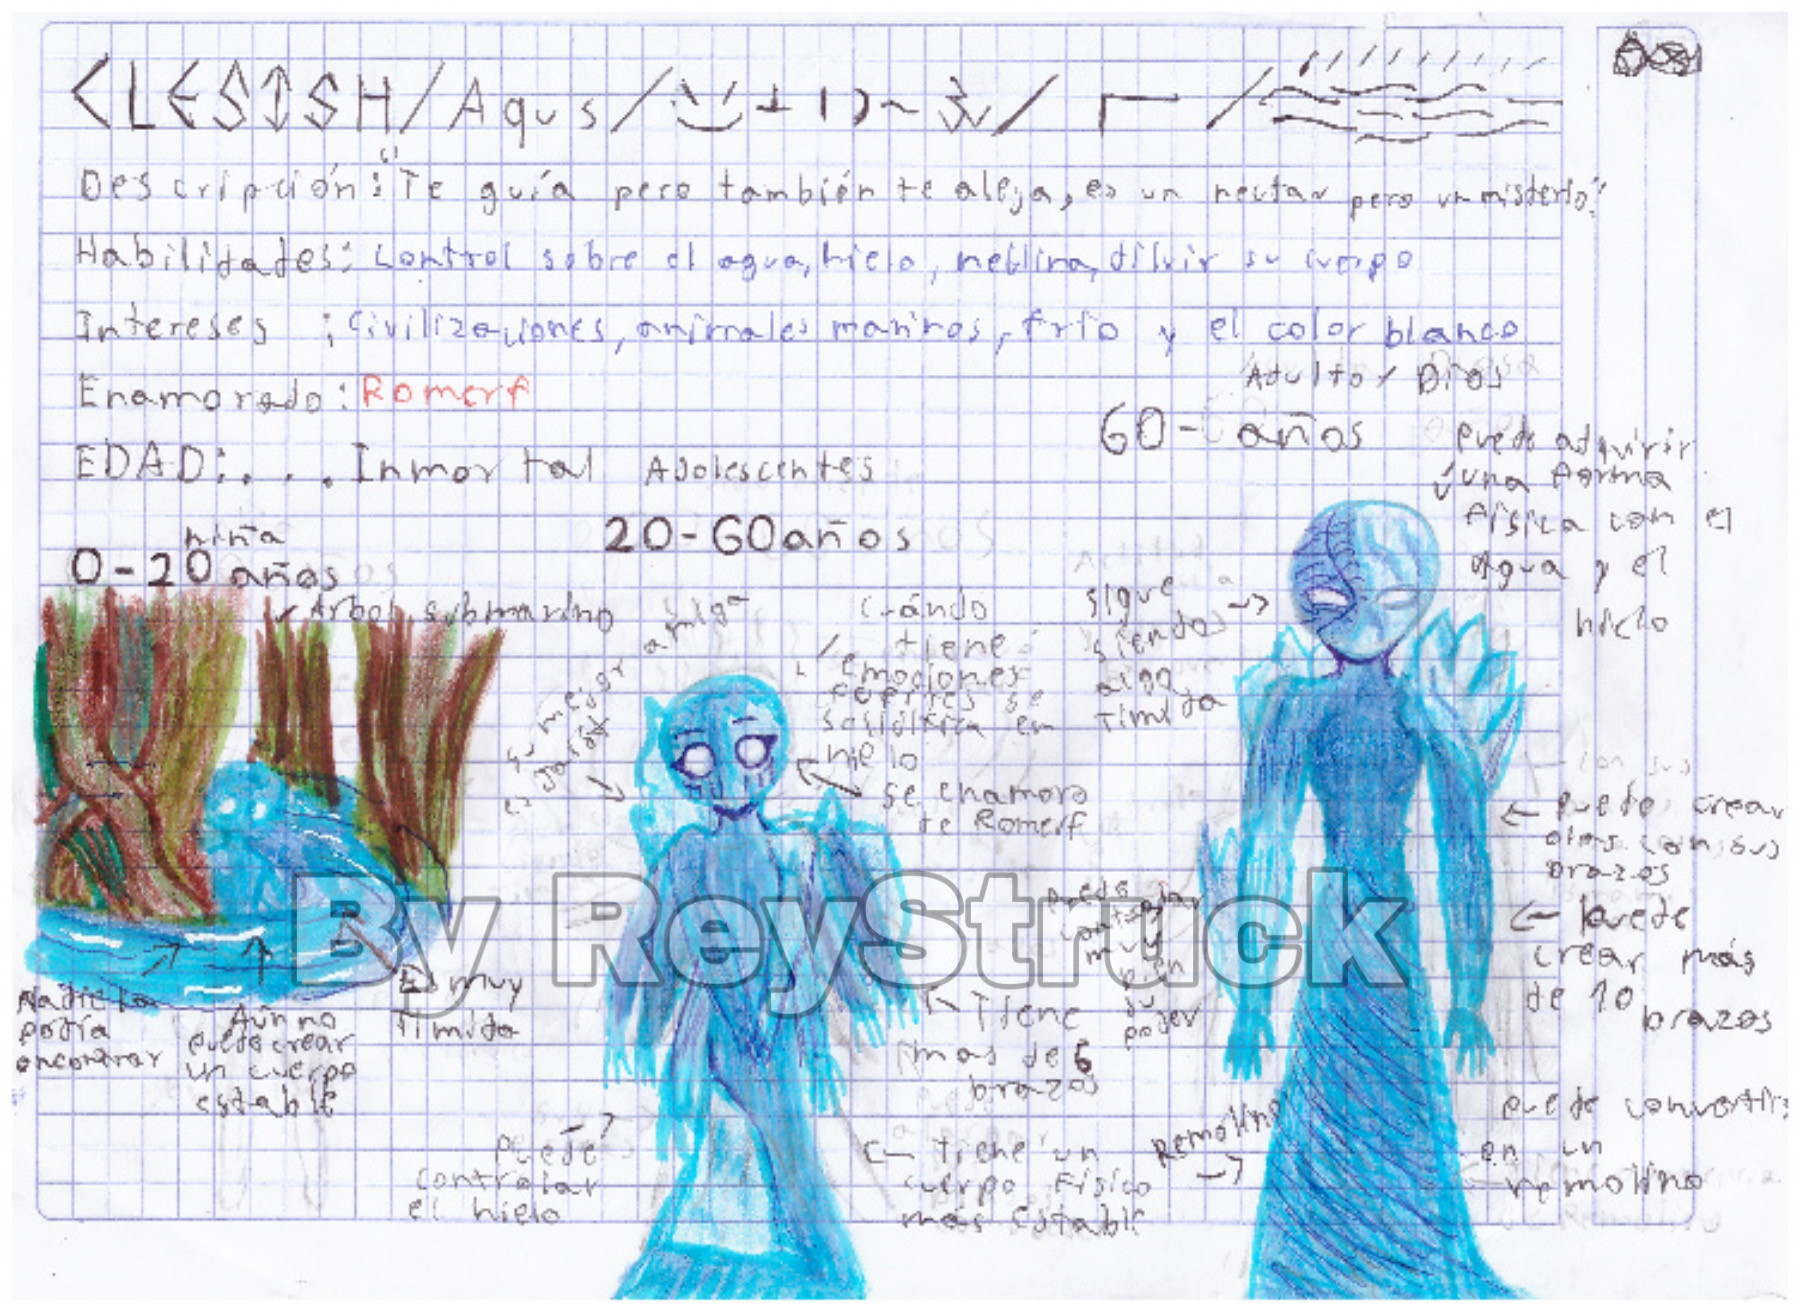 <LE SISH / Agus /
Descripción: "Te guía pero también te aleja, es un neutar pero un misterio"
Habilidades: Control sobre el agua, hielo, neblina, diluir su cuerpo
Intereses : Civilizaciones, animales marinos, frío y el color blanco
Enamorado: Romerf
EDAD: . . . Inmortal
niña
0-20 años
Arbol submarino
Nadie la
podía
encontrar
Aun no
puede crear
un cuerpo
estable
Es muy
timida
Adolescentes
20-60 años
su mejor amiga
es
cuándo
tiene
emociones
fuertes se
solidifica en
hielo
se enamoro
de Romerf
Tiene
mas de 6
brazos
puede
controlar
el hielo
tiene un
cuerpo Físico
más estable
Adulto / Dios
60- años
puede adquirir
una forma
física con el
agua y el
hielo
sigue
siendo
algo
timida
puede crear
olas con sus
brazos
puede
crear más
de 10
brazos
muy
bien
su
poder
Remolino
puede convertirse
en un
remolino
By ReyStruck